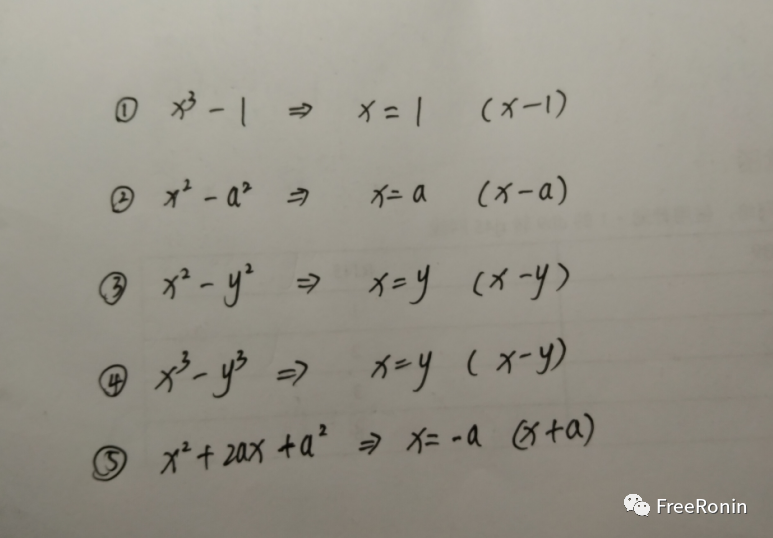 ① x³ - 1 ⇒ x = 1 (x-1)
② x² - a² ⇒ x = a (x-a)
③ x² - y² ⇒ x = y (x-y)
④ x³ - y³ ⇒ x = y (x-y)
⑤ x² + 2ax + a² ⇒ x = -a (x+a)
FreeRonin